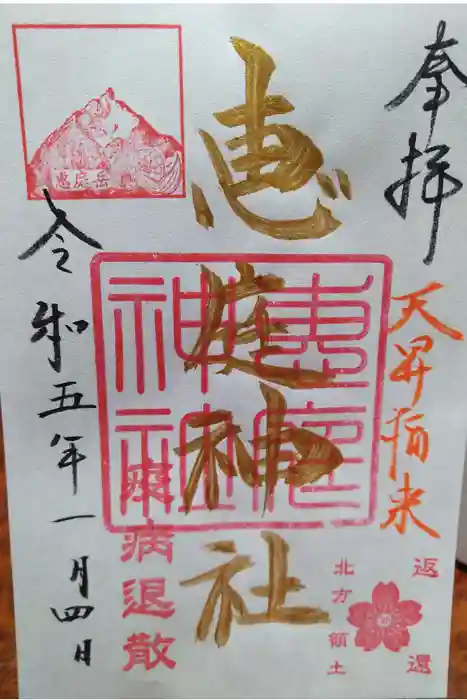 奉拝
天昇福来
返還
北方領土
恵庭神社
惠庭
神社
疫病退散
恵庭岳
令和五年一月四日